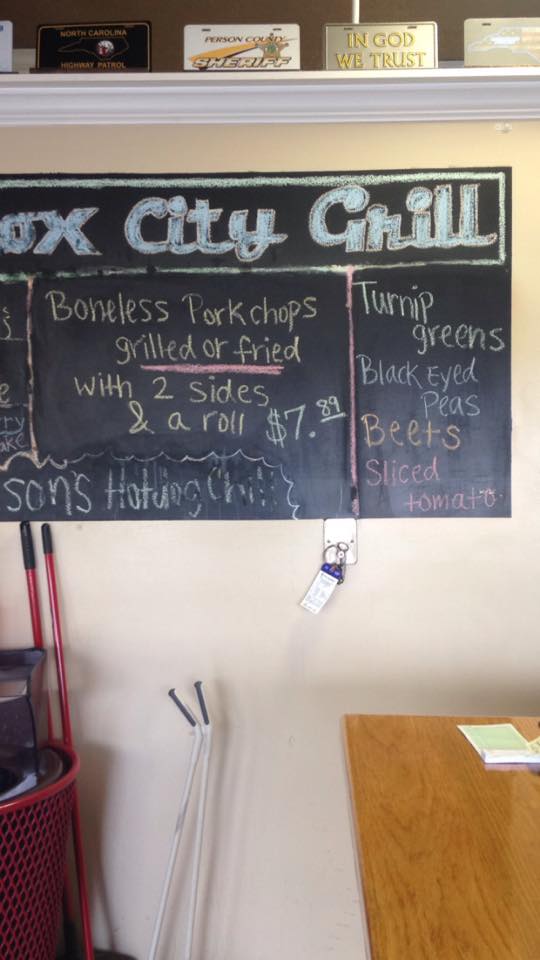 NORTH CAROLINA
HIGHWAY PATROL
PERSON COUNTY
SHERIFF
IN GOD
WE TRUST
ox City Grill
Boneless Porkchops
grilled or fried
with 2 sides
& a roll $7.89
Turnip
greens
Black Eyed
Peas
Beets
Sliced
tomato
son's Hotdog Chili